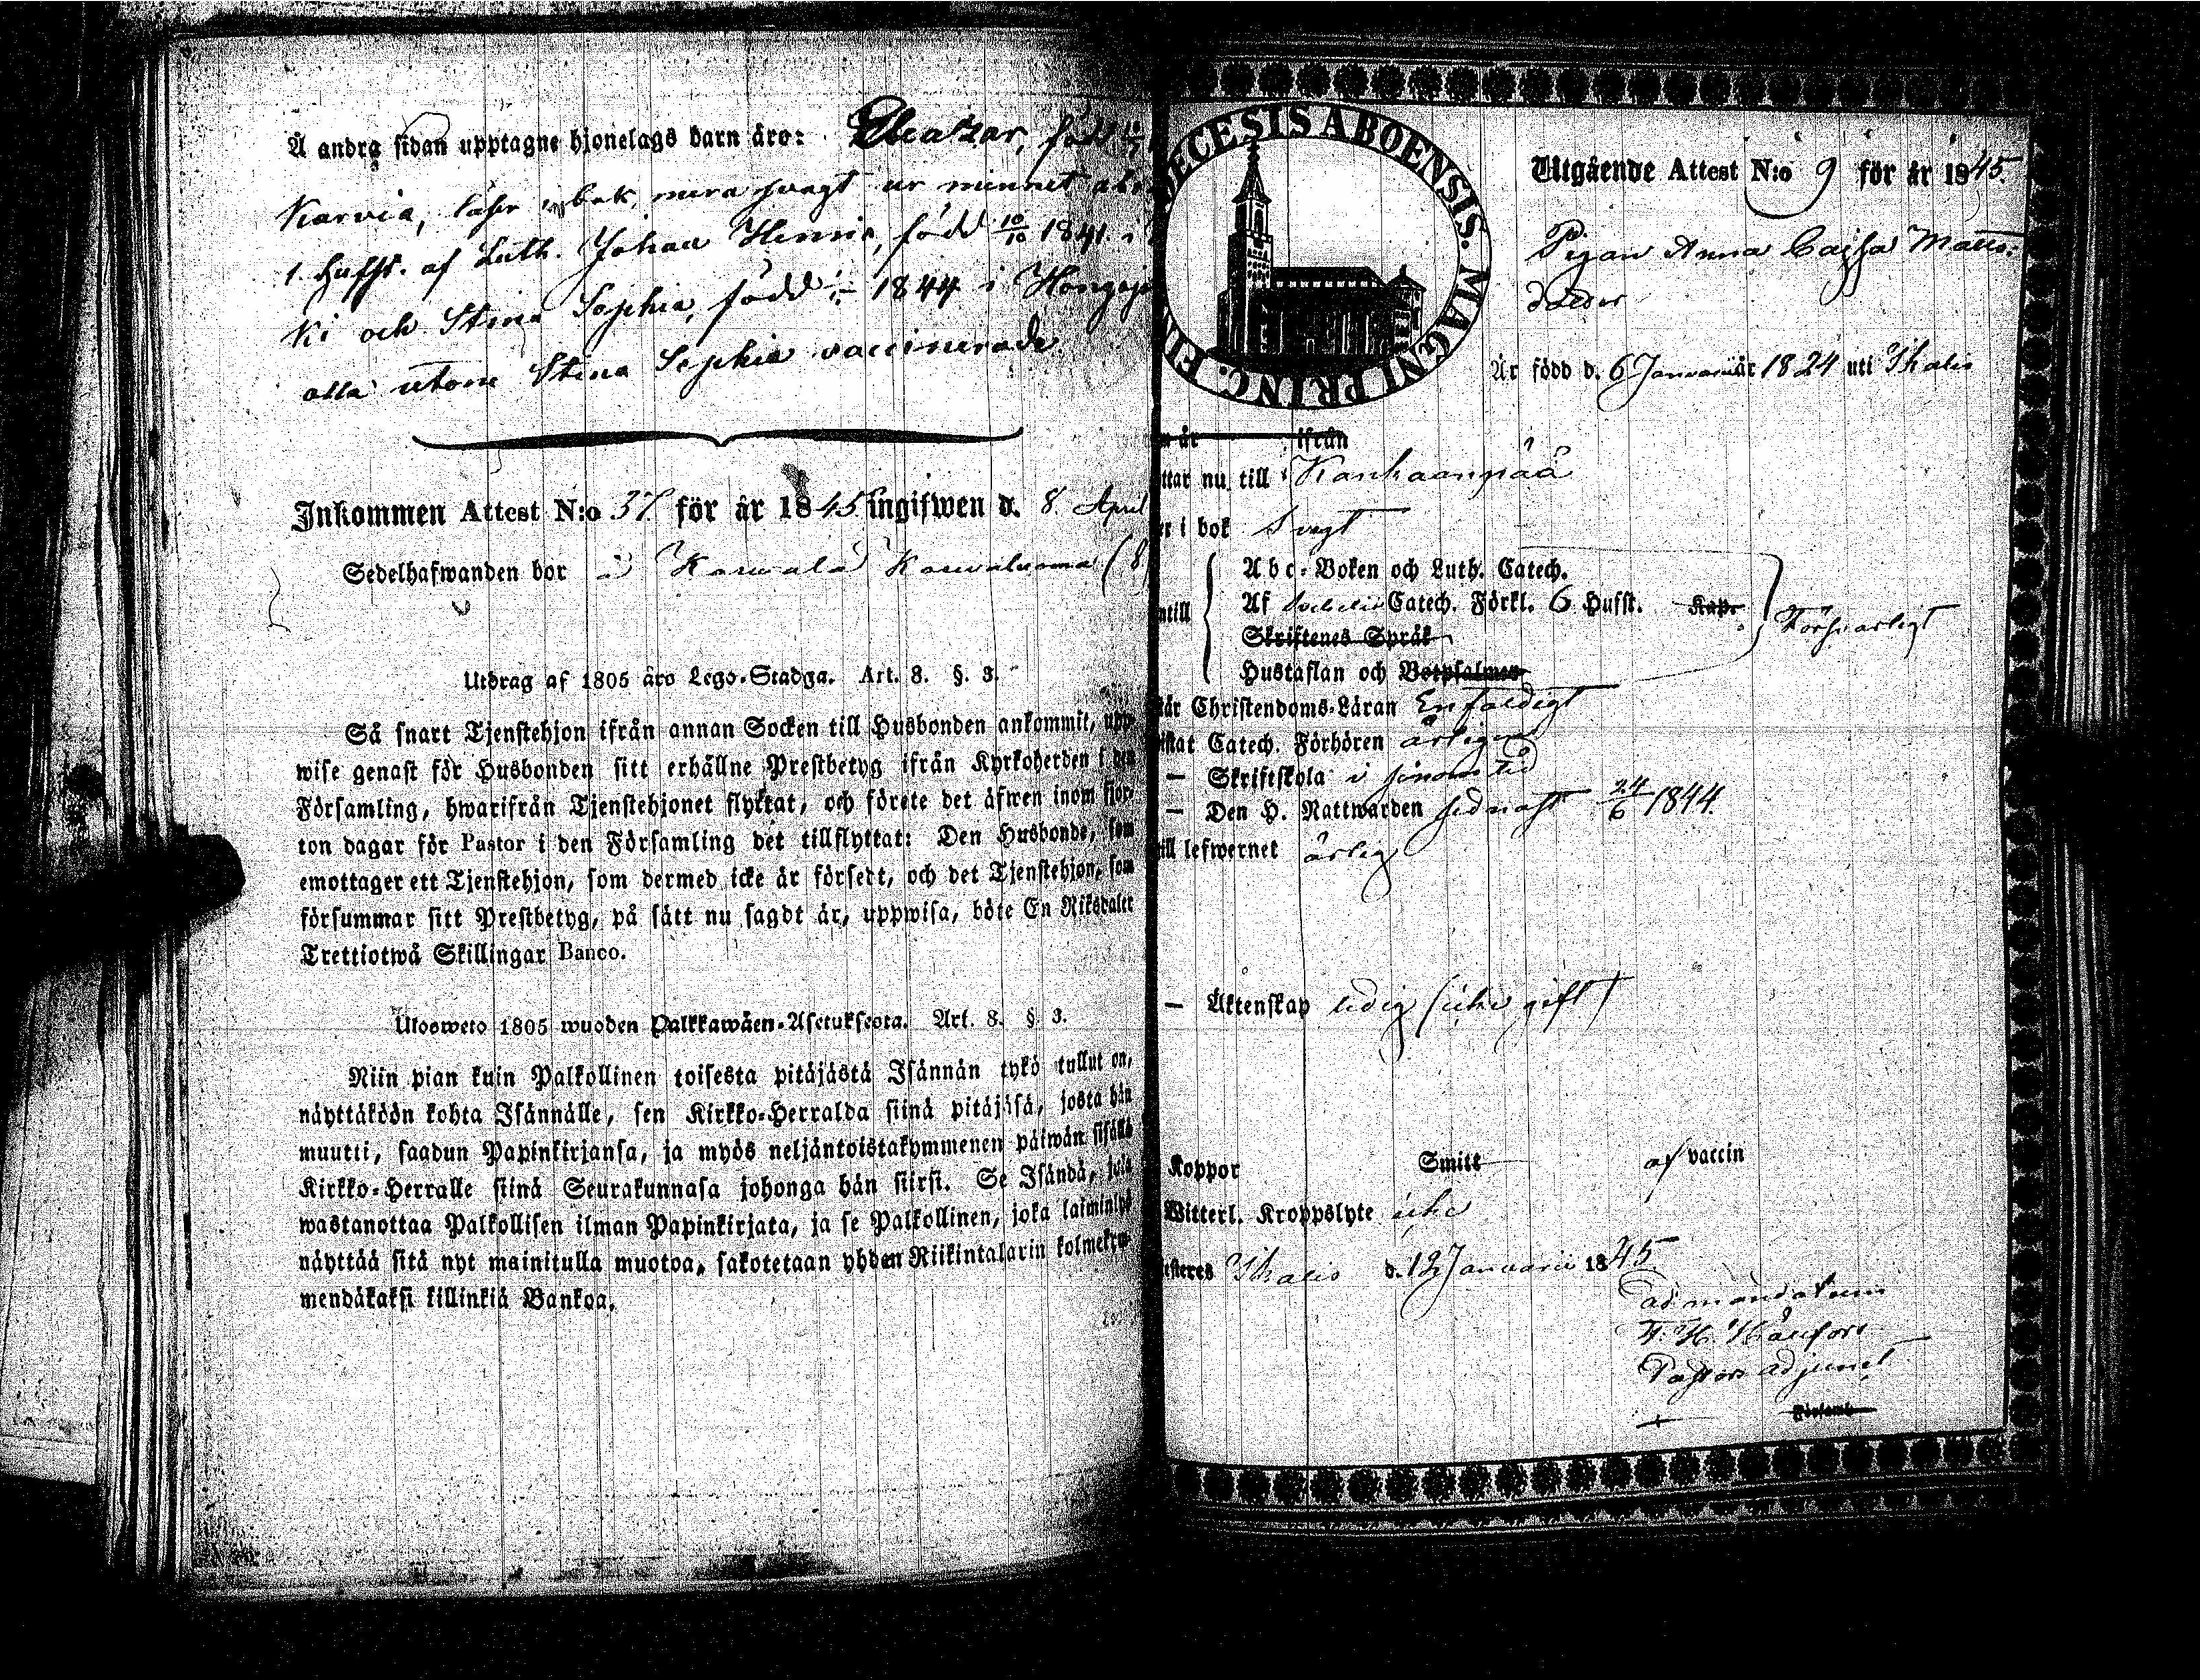 Å andra sidan upptagne hjonelags barn äro: Eleatzar, född
Karvia, läser i bok, mera svagt ur minnet
1. Hufst. af Luth. Johan Henric, född 10/10 1841 i
ki och Stina Sophia, född 1844 i
alla utom Stina Sophia vaccinerade.
Inkommen Attest N:o 37. för år 1845 Ingifwen d. 8 April
Sedelhafwanden bor å Karvala Karvaluoma (8
Utdrag af 1805 års Lego-Stadga. Art. 8. §. 3.
Så snart Tjenstehjon ifrån annan Socken till Husbonden ankommit, upp-
wise genast för Husbonden sitt erhållne Prestbetyg ifrån Kyrkoherden i den
Församling, hwarifrån Tjenstehjonet flyttat, och förete det äfwen inom fjor-
ton dagar för Pastor i den Församling det tillflyttat: Den Husbonde, som
emottager ett Tjenstehjon, som dermed icke är försedt, och det Tjenstehjon, som
försummar sitt Prestbetyg, på sätt nu sagdt är, uppwisa, böte En Riksdaler
Trettiotwå Skillingar Banco.
Ulosweto 1805 wuoden Palkkawäen-Asetuksesta. Art. 8. § 3.
Niin pian kuin Palkollinen toisesta pitäjästä Isännän tykö tullut on,
näyttäköön kohta Isännälle, sen Kirkko-Herralda siinä pitäjäsä, josta hän
muutti, saadun Papinkirjansa, ja myös neljäntoistakymmenen päiwän sisällä
Kirkko-Herralle siinä Seurakunnasa johonga hän siirsi. Se Isändä, joka
wastanottaa Palkollisen ilman Papinkirjata, ja se Palkollinen, joka laiminlyö
näyttää sitä nyt mainitulla muotoa, sakotetaan yhden Riikintalarin kolmekym-
mendäkaksi killinkiä Bankoa.
DECESIS ABOENSIS. MAGNI PRINC. FIN
Utgående Attest N:o 9 för år 1845.
Pigan Anna Cajsa Matts-
dotter
Är född d. 6 Januarii år 1824 uti Ikalis
år ifrån
ttar nu till Kankaanpää
er i bok Svagt
Abc-Boken och Luth. Catech.
ntill Af Svebelii Catech. Förkl. 6 Hufst. Kap. Försvarligt
Skriftenes Språk
Hustaflan och Botpsalmen
tår Christendoms-Läran Enfaldigt
istat Catech. Förhören årligen
— Skriftskola i sinom tid
— Den H. Nattwarden sednast 24/6 1844.
till lefwernet ärlig
— Äktenskap ledig (icke gift)
Koppor Smitt af vaccin
Witterl. Kroppslyte icke
isteres Ikalis d. 12 Januarii 1845.
Ad mandatum
Pastors adjunct
Församl